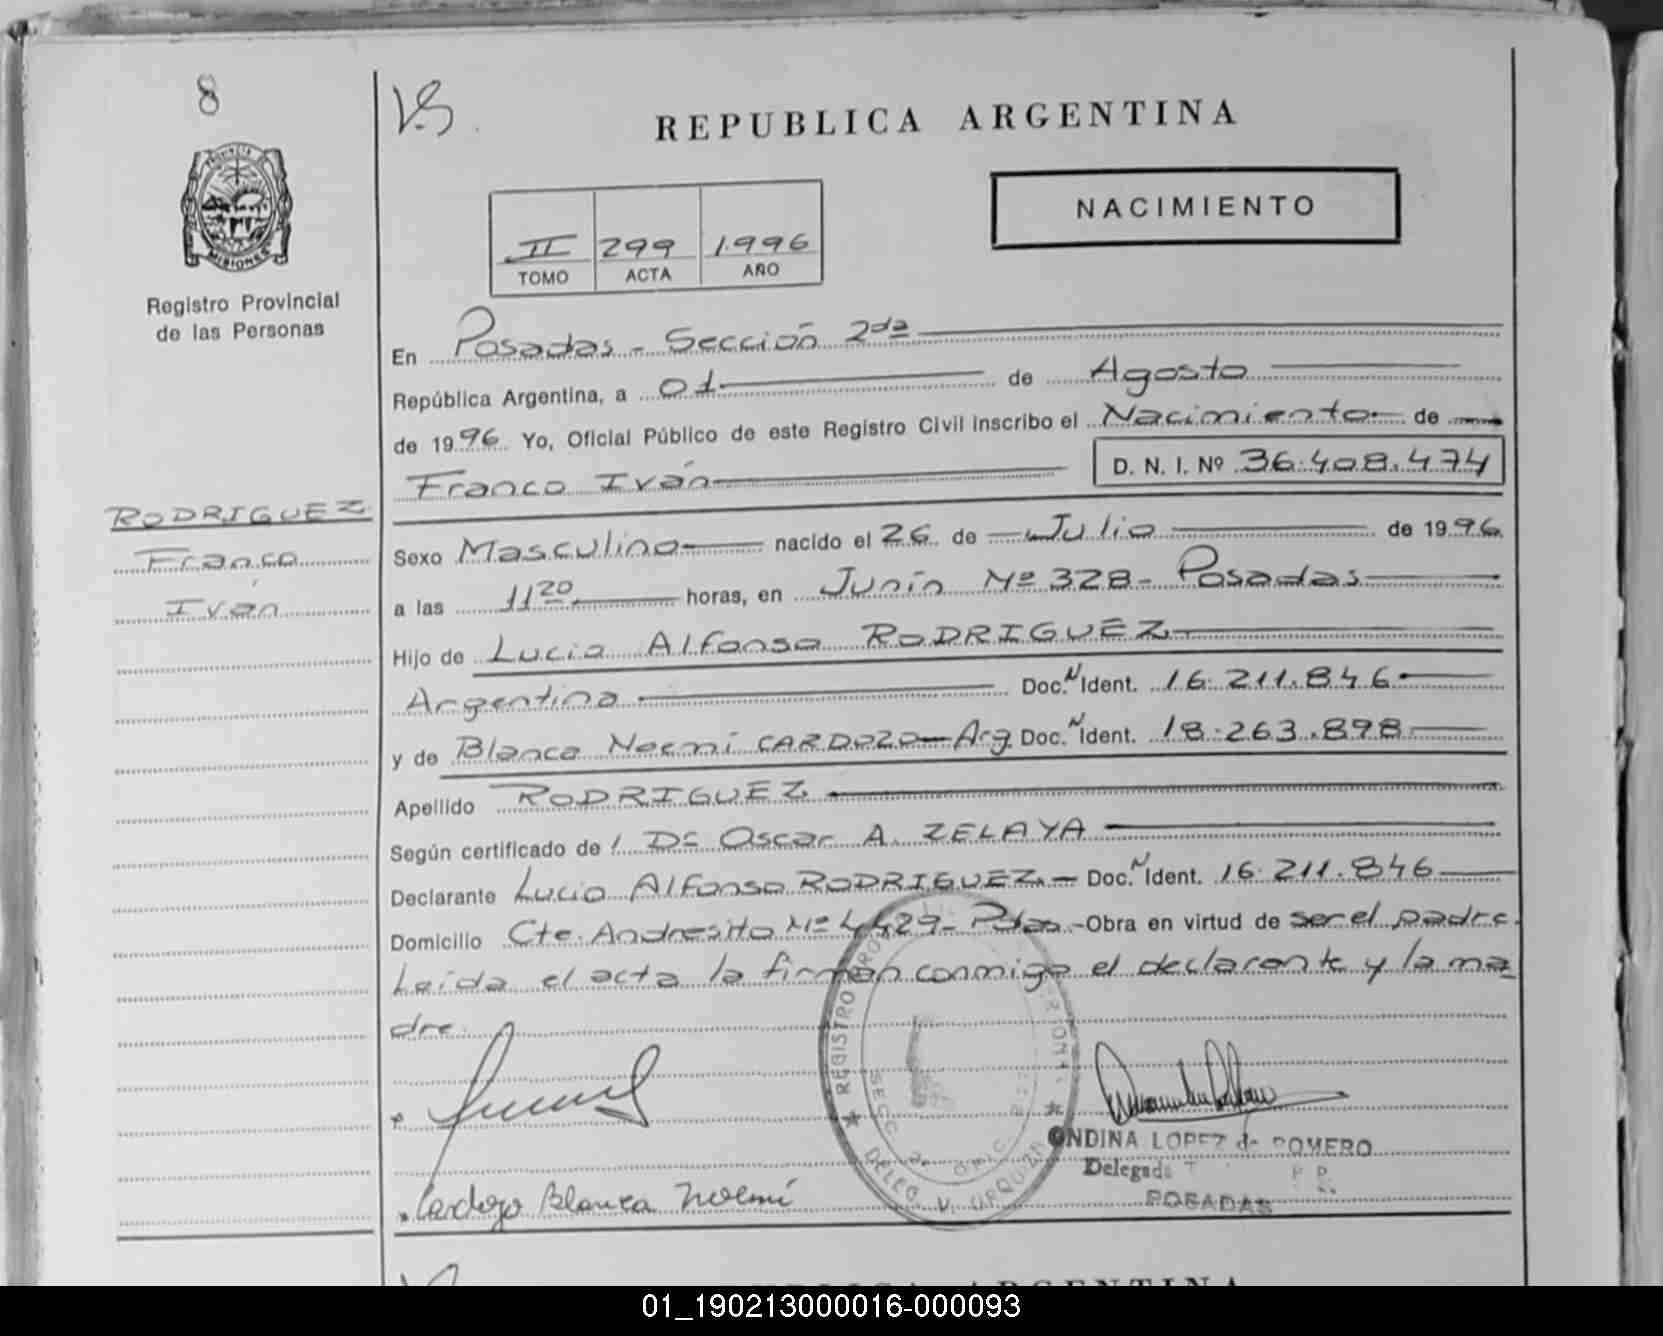 8
VS
REPUBLICA ARGENTINA
PROVINCIA DE
MISIONES
Registro Provincial
de las Personas
NACIMIENTO
II 299 1.996
TOMO ACTA AÑO
En Posadas - Sección 2da
República Argentina, a 01 de Agosto
de 1996 Yo, Oficial Público de este Registro Civil inscribo el Nacimiento de
Franco Iván D. N. I. Nº 36.408.474
RODRIGUEZ
Franco
Iván
Sexo Masculino nacido el 26 de Julio de 1996
a las 11 20 horas, en Junín Nº 328 - Posadas
Hijo de Lucio Alfonso RODRIGUEZ
Argentina Doc. N Ident. 16.211.846
y de Blanca Noemí CARDOZO - Arg. Doc. N Ident. 18.263.898
Apellido RODRIGUEZ
Según certificado de Dr Oscar A. ZELAYA
Declarante Lucio Alfonso RODRIGUEZ - Doc. N Ident. 16.211.846
Domicilio Cte. Andresito Nº 4429 - Pdas - Obra en virtud de ser el padre.
Leída el acta la firman conmigo el declarante y la ma
dre.
REGISTRO
SECC 2a
DELEG V. URQUIZA
ONDINA LOPEZ de ROMERO
Delegada
POSADAS
Cardozo Blanca Noemí
ARGENTINA
01_190213000016-000093